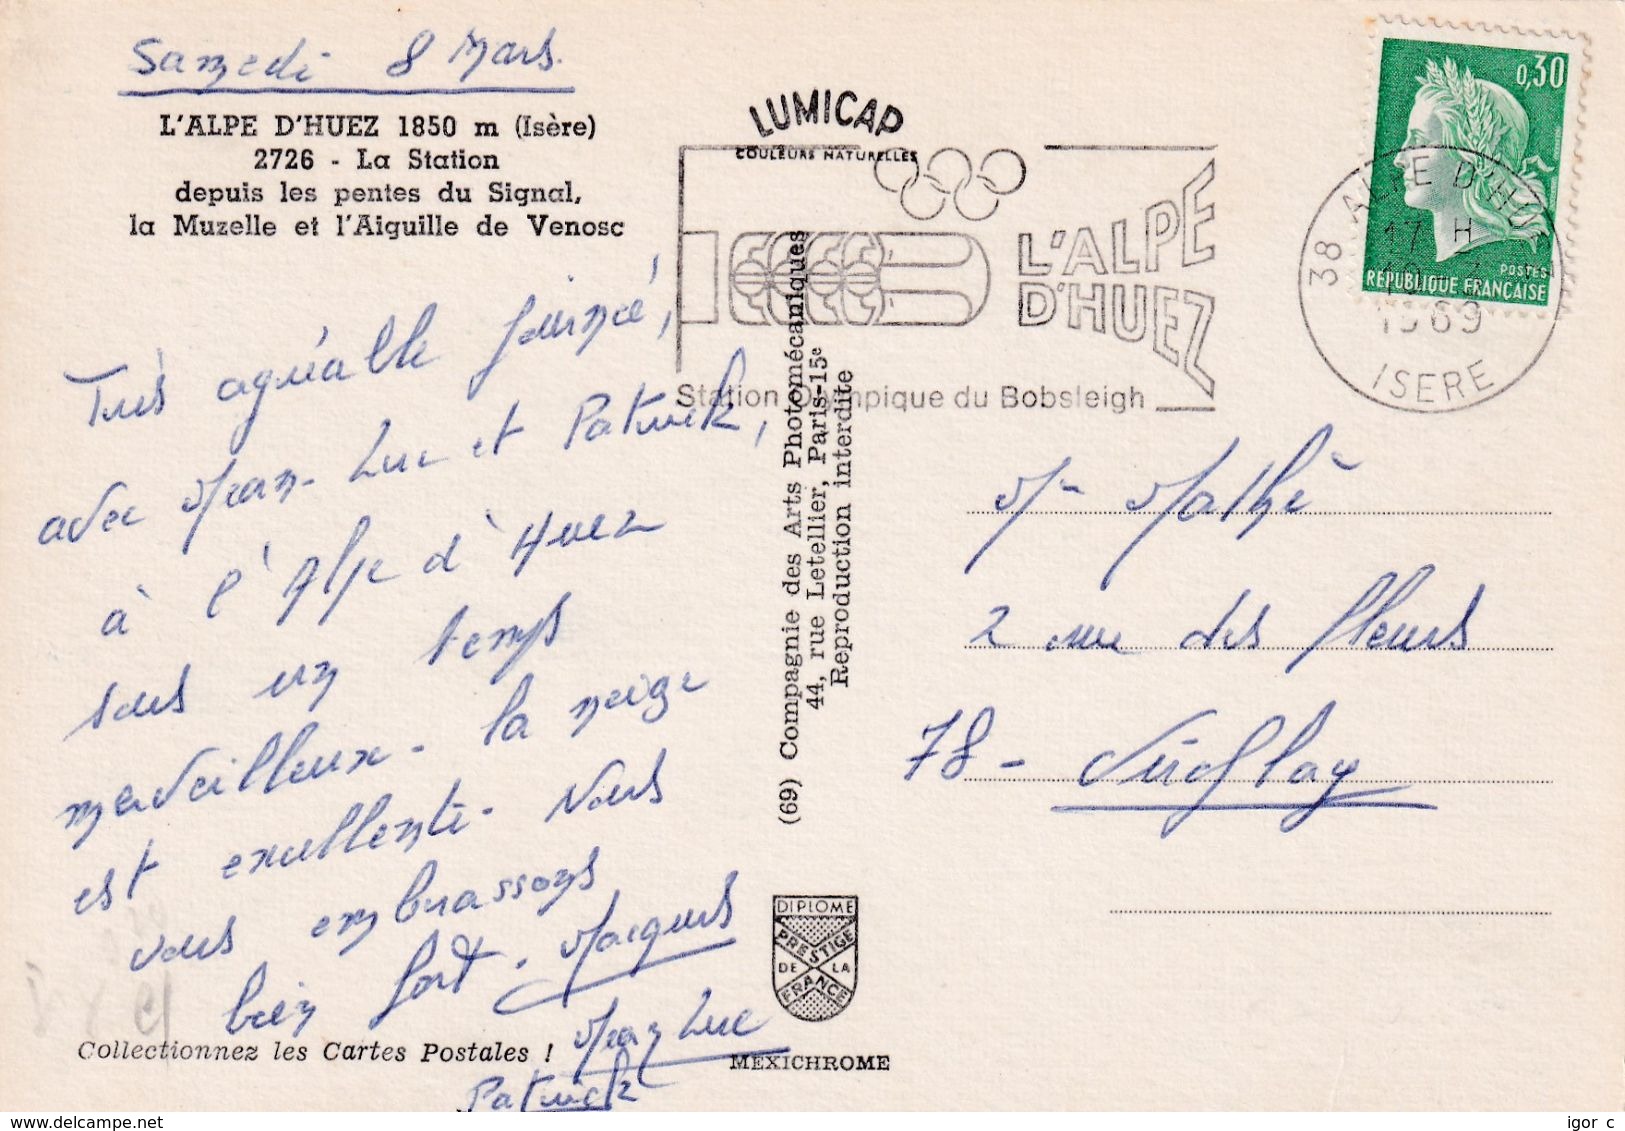 Samedi 8 Mars.
L'ALPE D'HUEZ 1850 m (Isère)
2726 - La Station
depuis les pentes du Signal,
la Muzelle et l'Aiguille de Venosc
Très agréable journée,
avec Jean-Luc et Patrick,
à l'Alpe d'Huez
sous un temps
merveilleux - la neige
est excellente - Nous
vous embrassons
bien fort. Jacques
Jean Luc
Patrick
Collectionnez les Cartes Postales !
LUMICAP
COULEURS NATURELLES
L'ALPE
D'HUEZ
Station Olympique du Bobsleigh
(69) Compagnie des Arts Photomécaniques
44, rue Letellier, Paris-15e
Reproduction interdite
DIPLOME
PRESTIGE
DE LA
FRANCE
MEXICHROME
0,30
POSTES
REPUBLIQUE FRANÇAISE
38 ALPE D'HU
17 H
1969
ISERE
Mathé
2 rue des fleurs
78 - Viroflay
igor c